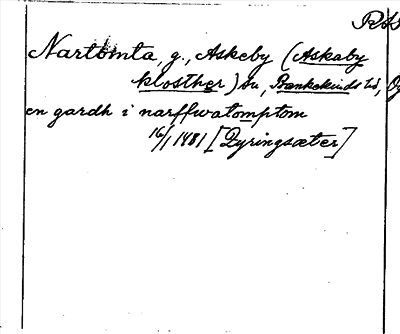 RAS
Nartomta, g., Askeby (Askaby
kloster) sn, Bankekinds hd, Ög
en gardh i narffwatomptom
16/1 1481 [Dyringsæter]